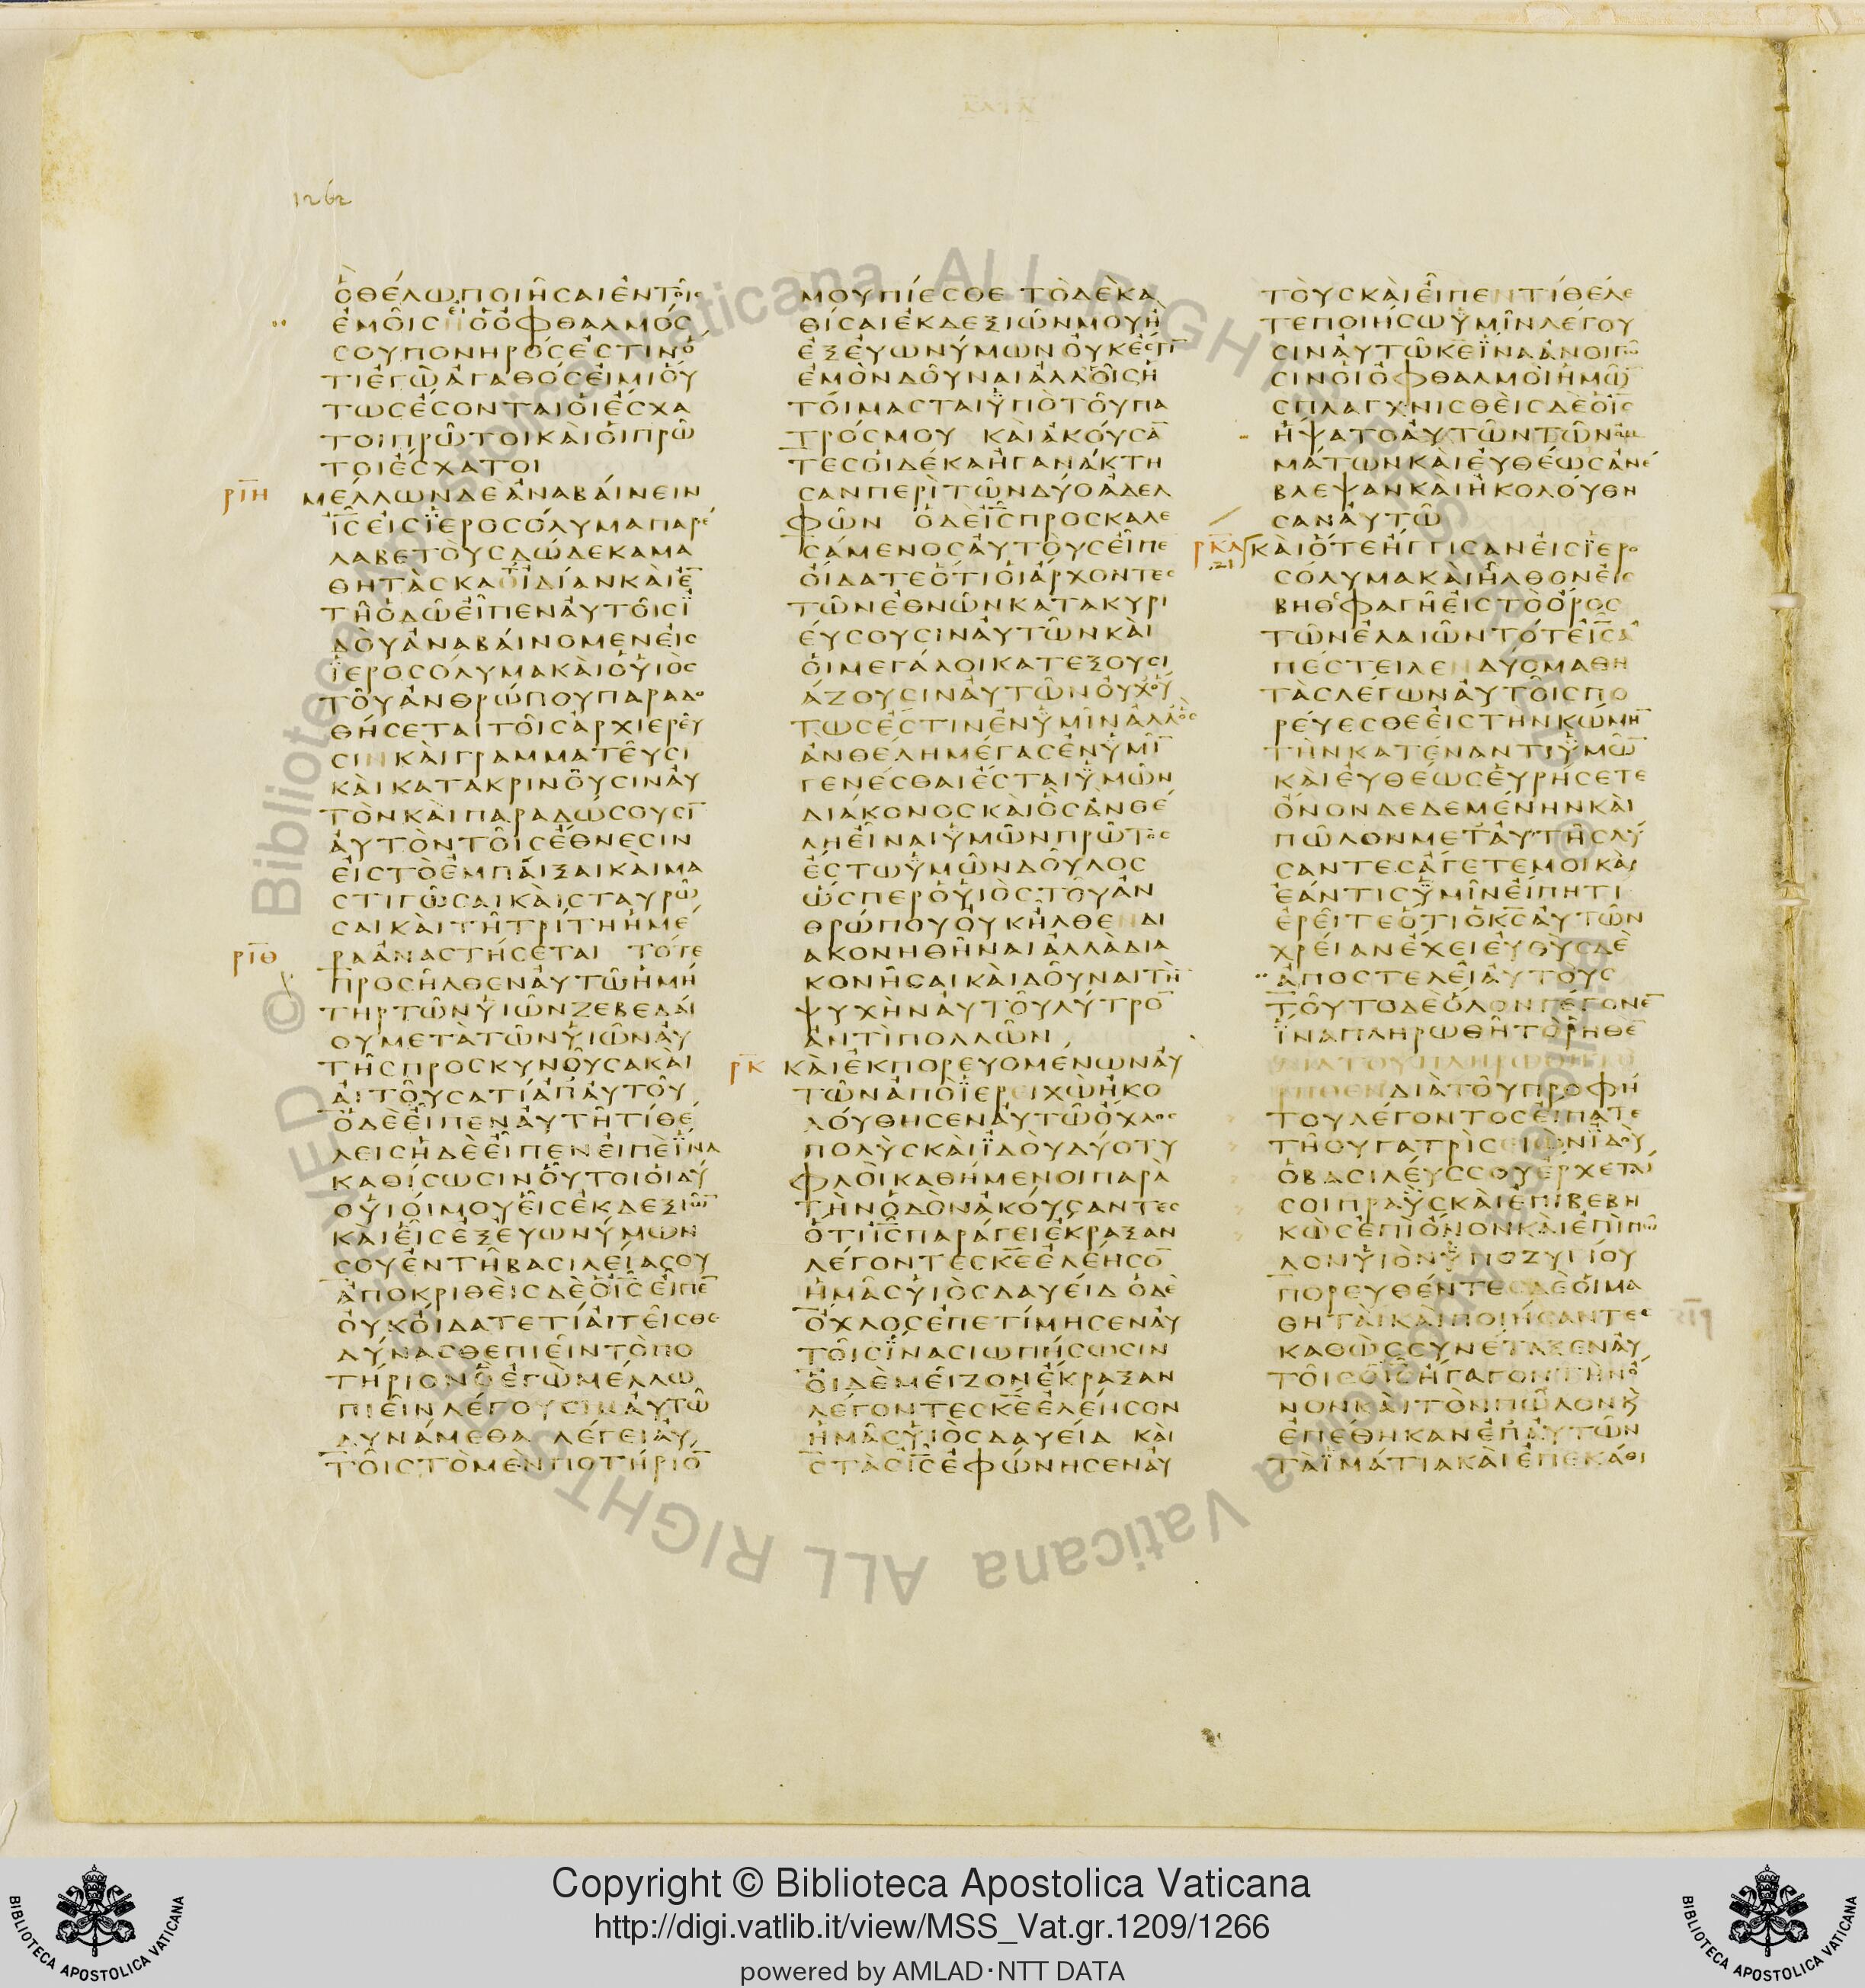 1262
ΟΘΕΛΩΠΟΙΗΣΑΙΕΝΤΟΙΣ
ΕΜΟΙΣΗΟΟΦΘΑΛΜΟΣ
ΣΟΥΠΟΝΗΡΟΣΕΣΤΙΝΟ
ΤΙΕΓΩΑΓΑΘΟΣΕΙΜΙΟΥ
ΤΩΣΕΣΟΝΤΑΙΟΙΕΣΧΑ
ΤΟΙΠΡΩΤΟΙΚΑΙΟΙΠΡΩ
ΤΟΙΕΣΧΑΤΟΙ
ΡΙΗ ΜΕΛΛΩΝΔΕΑΝΑΒΑΙΝΕΙΝ
ΙΣ̅ΕΙΣΪΕΡΟΣΟΛΥΜΑΠΑΡΕ
ΛΑΒΕΤΟΥΣΔΩΔΕΚΑΜΑ
ΘΗΤΑΣΚΑΘΙΔΙΑΝΚΑΙΕ̅
ΤΗΟΔΩΕΙΠΕΝΑΥΤΟΙΣΪ
ΔΟΥΑΝΑΒΑΙΝΟΜΕΝΕΙΣ
ΪΕΡΟΣΟΛΥΜΑΚΑΙΟΥΙΟΣ
ΤΟΥΑΝΘΡΩΠΟΥΠΑΡΑΔΟ
ΘΗΣΕΤΑΙΤΟΙΣΑΡΧΙΕΡΕΥ
ΣΙΝΚΑΙΓΡΑΜΜΑΤΕΥΣΙ
ΚΑΙΚΑΤΑΚΡΙΝΟΥΣΙΝΑΥ
ΤΟΝΚΑΙΠΑΡΑΔΩΣΟΥΣΙ̅
ΑΥΤΟΝΤΟΙΣΕΘΝΕΣΙΝ
ΕΙΣΤΟΕΜΠΑΙΞΑΙΚΑΙΜΑ
ΣΤΙΓΩΣΑΙΚΑΙΣΤΑΥΡΩ
ΣΑΙΚΑΙΤΗΤΡΙΤΗΗΜΕ
ΡΙΘ ΡΑΑΝΑΣΤΗΣΕΤΑΙ ΤΟΤΕ
ΠΡΟΣΗΛΘΕΝΑΥΤΩΗΜΗ
ΤΗΡΤΩΝΥΙΩΝΖΕΒΕΔΑΙ
ΟΥΜΕΤΑΤΩΝΥΙΩΝΑΥ
ΤΗΣΠΡΟΣΚΥΝΟΥΣΑΚΑΙ
ΑΙΤΟΥΣΑΤΙΑΠΑΥΤΟΥ
ΟΔΕΕΙΠΕΝΑΥΤΗΤΙΘΕ
ΛΕΙΣΗΔΕΕΙΠΕΝΕΙΠΕΪΝΑ
ΚΑΘΙΣΩΣΙΝΟΥΤΟΙΟΙΔΥ
ΟΥΙΟΙΜΟΥΕΙΣΕΚΔΕΞΙΩ̅
ΚΑΙΕΙΣΕΞΕΥΩΝΥΜΩΝ
ΣΟΥΕΝΤΗΒΑΣΙΛΕΙΑΣΟΥ
ΑΠΟΚΡΙΘΕΙΣΔΕΟΙΣ̅ΕΙΠΕ̅
ΟΥΚΟΙΔΑΤΕΤΙΑΙΤΕΙΣΘΕ
ΔΥΝΑΣΘΕΠΙΕΙΝΤΟΠΟ
ΤΗΡΙΟΝΟΕΓΩΜΕΛΛΩ
ΠΙΕΙΝΛΕΓΟΥΣΙΝΑΥΤΩ
ΔΥΝΑΜΕΘΑ ΛΕΓΕΙΑΥ
ΤΟΙΣΤΟΜΕΝΠΟΤΗΡΙΟ̅
ΜΟΥΠΙΕΣΘΕ ΤΟΔΕΚΑ
ΘΙΣΑΙΕΚΔΕΞΙΩΝΜΟΥΗ
ΕΞΕΥΩΝΥΜΩΝΟΥΚΕΣΤΙ̅
ΕΜΟΝΔΟΥΝΑΙΑΛΛΟΙΣΗ
ΤΟΙΜΑΣΤΑΙΫΠΟΤΟΥΠΑ
ΤΡΟΣΜΟΥ ΚΑΙΑΚΟΥΣΑ̅
ΤΕΣΟΙΔΕΚΑΗΓΑΝΑΚΤΗ
ΣΑΝΠΕΡΙΤΩΝΔΥΟΑΔΕΛ
ΦΩΝ ΟΔΕΙΣ̅ΠΡΟΣΚΑΛΕ
ΣΑΜΕΝΟΣΑΥΤΟΥΣΕΙΠΕ
ΟΙΔΑΤΕΟΤΙΟΙΑΡΧΟΝΤΕΣ
ΤΩΝΕΘΝΩΝΚΑΤΑΚΥΡΙ
ΕΥΣΟΥΣΙΝΑΥΤΩΝΚΑΙ
ΟΙΜΕΓΑΛΟΙΚΑΤΕΞΟΥΣΙ
ΑΖΟΥΣΙΝΑΥΤΩΝΟΥΧΟΥ
ΤΩΣΕΣΤΙΝΕΝΫΜΙΝΑΛΛΟΣ
ΑΝΘΕΛΗΜΕΓΑΣΕΝΫΜΙ̅
ΓΕΝΕΣΘΑΙΕΣΤΑΙΫΜΩΝ
ΔΙΑΚΟΝΟΣΚΑΙΟΣΑΝΘΕ
ΛΗΕΙΝΑΙΫΜΩΝΠΡΩΤΟΣ
ΕΣΤΩΫΜΩΝΔΟΥΛΟΣ
ΩΣΠΕΡΟΥΙΟΣΤΟΥΑΝ
ΘΡΩΠΟΥΟΥΚΗΛΘΕΝΔΙ
ΑΚΟΝΗΘΗΝΑΙΑΛΛΑΔΙΑ
ΚΟΝΗΣΑΙΚΑΙΔΟΥΝΑΙΤΗ̅
ΨΥΧΗΝΑΥΤΟΥΛΥΤΡΟ̅
ΑΝΤΙΠΟΛΛΩΝ
ΡΚ ΚΑΙΕΚΠΟΡΕΥΟΜΕΝΩΝΑΥ
ΤΩΝΑΠΟΪΕΡΕΙΧΩΗΚΟ
ΛΟΥΘΗΣΕΝΑΥΤΩΟΧΛΟΣ
ΠΟΛΥΣΚΑΙΪΔΟΥΔΥΟΤΥ
ΦΛΟΙΚΑΘΗΜΕΝΟΙΠΑΡΑ
ΤΗΝΟΔΟΝΑΚΟΥΣΑΝΤΕΣ
ΟΤΙΙΣ̅ΠΑΡΑΓΕΙΕΚΡΑΞΑΝ
ΛΕΓΟΝΤΕΣΚΕ̅ΕΛΕΗΣΟ̅
ΗΜΑΣΥΙΟΣΔΑΥΕΙΔ ΟΔΕ
ΟΧΛΟΣΕΠΕΤΙΜΗΣΕΝΑΥ
ΤΟΙΣΪΝΑΣΙΩΠΗΣΩΣΙΝ
ΟΙΔΕΜΕΙΖΟΝΕΚΡΑΞΑΝ
ΛΕΓΟΝΤΕΣΚΕ̅ΕΛΕΗΣΟΝ
ΗΜΑΣΥΙΟΣΔΑΥΕΙΔ ΚΑΙ
ΣΤΑΣΙΣ̅ΕΦΩΝΗΣΕΝΑΥ
ΤΟΥΣΚΑΙΕΙΠΕΝΤΙΘΕΛΕ
ΤΕΠΟΙΗΣΩΫΜΙΝΛΕΓΟΥ
ΣΙΝΑΥΤΩΚΕ̅ΪΝΑΑΝΟΙΓΩ
ΣΙΝΟΙΟΦΘΑΛΜΟΙΗΜΩ̅
ΣΠΛΑΓΧΝΙΣΘΕΙΣΔΕΟΙΣ̅
ΗΨΑΤΟΑΥΤΩΝΤΩΝΟΜ
ΜΑΤΩΝΚΑΙΕΥΘΕΩΣΑΝΕ
ΒΛΕΨΑΝΚΑΙΗΚΟΛΟΥΘΗ
ΣΑΝΑΥΤΩ
ΡΚΑ ΚΑΙΟΤΕΗΓΓΙΣΑΝΕΙΣΪΕΡΟ
.21 ΣΟΛΥΜΑΚΑΙΗΛΘΟΝΕΙΣ
ΒΗΘΦΑΓΗΕΙΣΤΟΟΡΟΣ
ΤΩΝΕΛΑΙΩΝΤΟΤΕΙΣ̅Α
ΠΕΣΤΕΙΛΕΝΔΥΟΜΑΘΗ
ΤΑΣΛΕΓΩΝΑΥΤΟΙΣΠΟ
ΡΕΥΕΣΘΕΕΙΣΤΗΝΚΩΜΗ̅
ΤΗΝΚΑΤΕΝΑΝΤΙΫΜΩ̅
ΚΑΙΕΥΘΕΩΣΕΥΡΗΣΕΤΕ
ΟΝΟΝΔΕΔΕΜΕΝΗΝΚΑΙ
ΠΩΛΟΝΜΕΤΑΥΤΗΣΛΥ
ΣΑΝΤΕΣΑΓΕΤΕΜΟΙΚΑΙ
ΕΑΝΤΙΣΫΜΙΝΕΙΠΗΤΙ
ΕΡΕΙΤΕΟΤΙΟΚΣ̅ΑΥΤΩΝ
ΧΡΕΙΑΝΕΧΕΙΕΥΘΥΣΔΕ
ΑΠΟΣΤΕΛΕΙΑΥΤΟΥΣ
ΤΟΥΤΟΔΕΟΛΟΝΓΕΓΟΝΕ̅
ΪΝΑΠΛΗΡΩΘΗΤΟΡΗΘΕ̅
ΔΙΑΤΟΥΠΡΟΦΗ
ΤΟΥΛΕΓΟΝΤΟΣΕΙΠΑΤΕ
ΤΗΘΥΓΑΤΡΙΣΕΙΩΝΪΔΟΥ
ΟΒΑΣΙΛΕΥΣΣΟΥΕΡΧΕΤΑΙ
ΣΟΙΠΡΑΫΣΚΑΙΕΠΙΒΕΒΗ
ΚΩΣΕΠΙΟΝΟΝΚΑΙΕΠΙΠΩ
ΛΟΝΥΙΟΝΫΠΟΖΥΓΙΟΥ
ΠΟΡΕΥΘΕΝΤΕΣΔΕΟΙΜΑ
ΘΗΤΑΙΚΑΙΠΟΙΗΣΑΝΤΕΣ
ΚΑΘΩΣΣΥΝΕΤΑΞΕΝΑΥ
ΤΟΙΣΟΙΣ̅ΗΓΑΓΟΝΤΗΝΟ
ΝΟΝΚΑΙΤΟΝΠΩΛΟΝΚΑΙ
ΕΠΕΘΗΚΑΝΕΠΑΥΤΩΝ
ΤΑΪΜΑΤΙΑΚΑΙΕΠΕΚΑΘΙ
Copyright © Biblioteca Apostolica Vaticana
http://digi.vatlib.it/view/MSS_Vat.gr.1209/1266
powered by AMLAD·NTT DATA
BIBLIOTECA APOSTOLICA VATICANA
BIBLIOTECA APOSTOLICA VATICANA
© Biblioteca Apostolica Vaticana ALL RIGHTS RESERVED